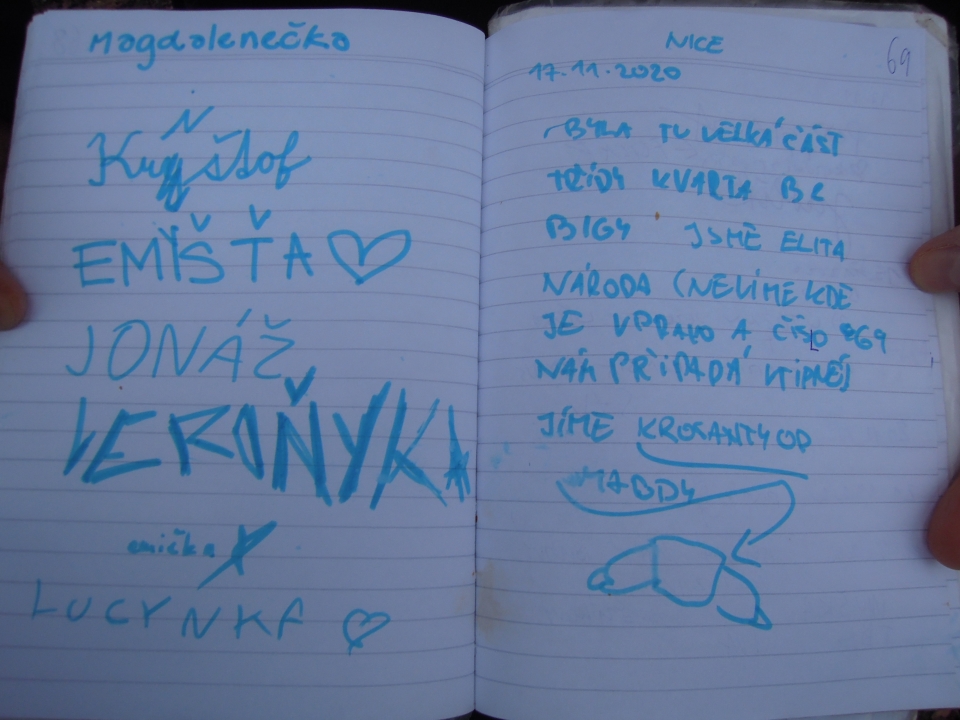 Magdalenečka
Kryštof
EMÍŠŤA
JONÁŽ
VEROŇYKA
emička
LUCYNKA
NICE
69
17.11.2020
BYLA TU VELKÁ ČÁST
TŘÍDY KVARTA B Z
BIGY JSME ELITA
NÁRODA (NEVÍME KDE
JE VPRAVO A ČÍSLO 69
NÁM PŘIPADÁ VTIPNÉ)
JÍME KROSANTY OD
MAGDY